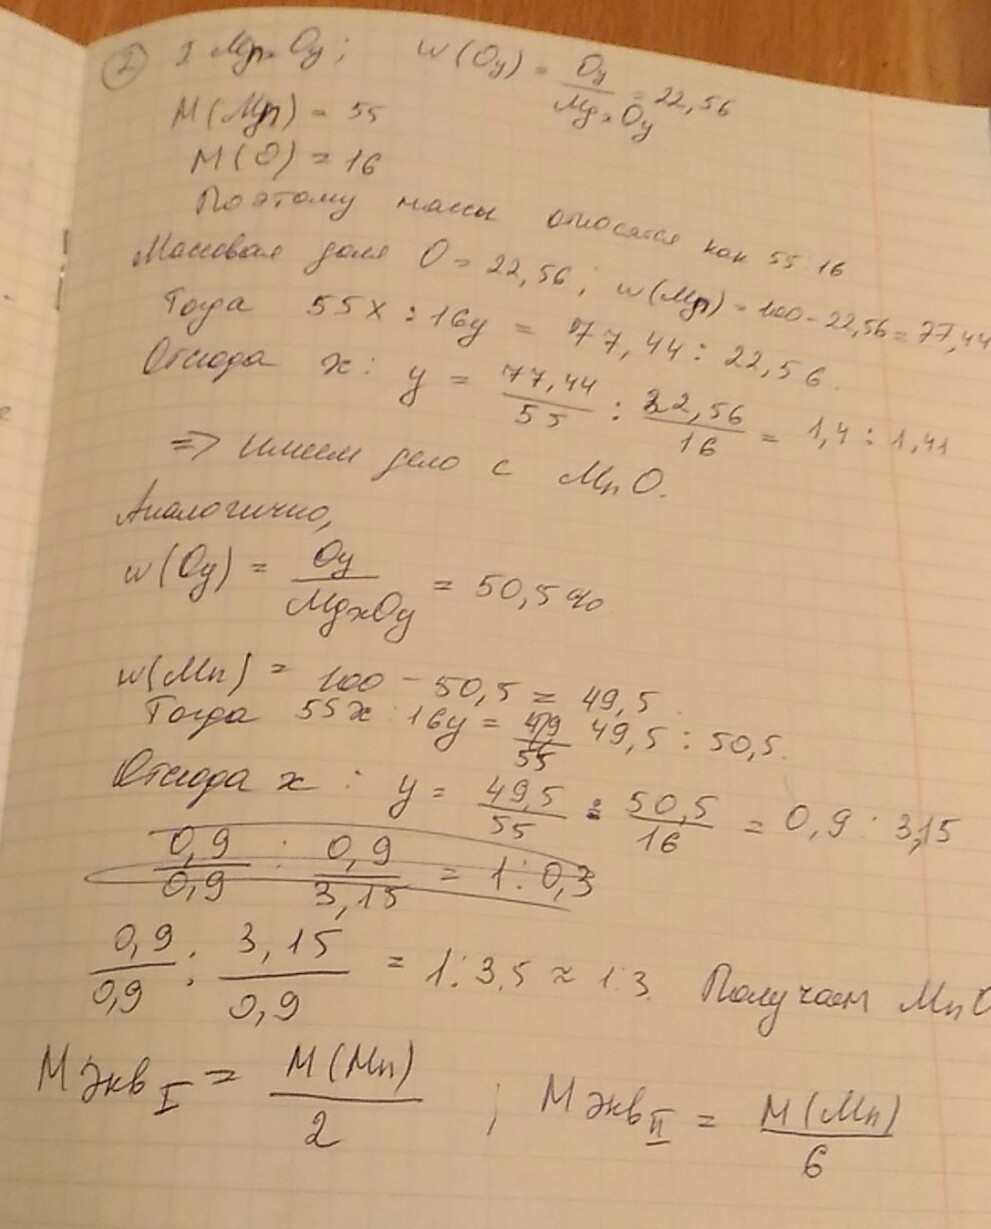 ② I MnxOy; w(Oy) = Oy/MgxOy = 22,56
M(Mn) = 55
M(O) = 16
Поэтому массы относятся как 55:16
Массовая доля O = 22,56; w(Mn) = 100 - 22,56 = 77,44
Тогда 55x : 16y = 77,44 : 22,56.
Отсюда x : y = 77,44/55 : 22,56/16 = 1,4 : 1,41
=> имеем дело с MnO.
Аналогично,
w(Oy) = Oy/MgxOy = 50,5%
w(Mn) = 100 - 50,5 = 49,5.
Тогда 55x : 16y = 49/55 49,5 : 50,5.
Отсюда x : y = 49,5/55 : 50,5/16 = 0,9 : 3,15
0,9/0,9 : 0,9/3,15 = 1 : 0,3
0,9/0,9 : 3,15/0,9 = 1 : 3,5 ≈ 1:3. Получаем MnO
M экв I = M(Mn)/2 ; M экв II = M(Mn)/6